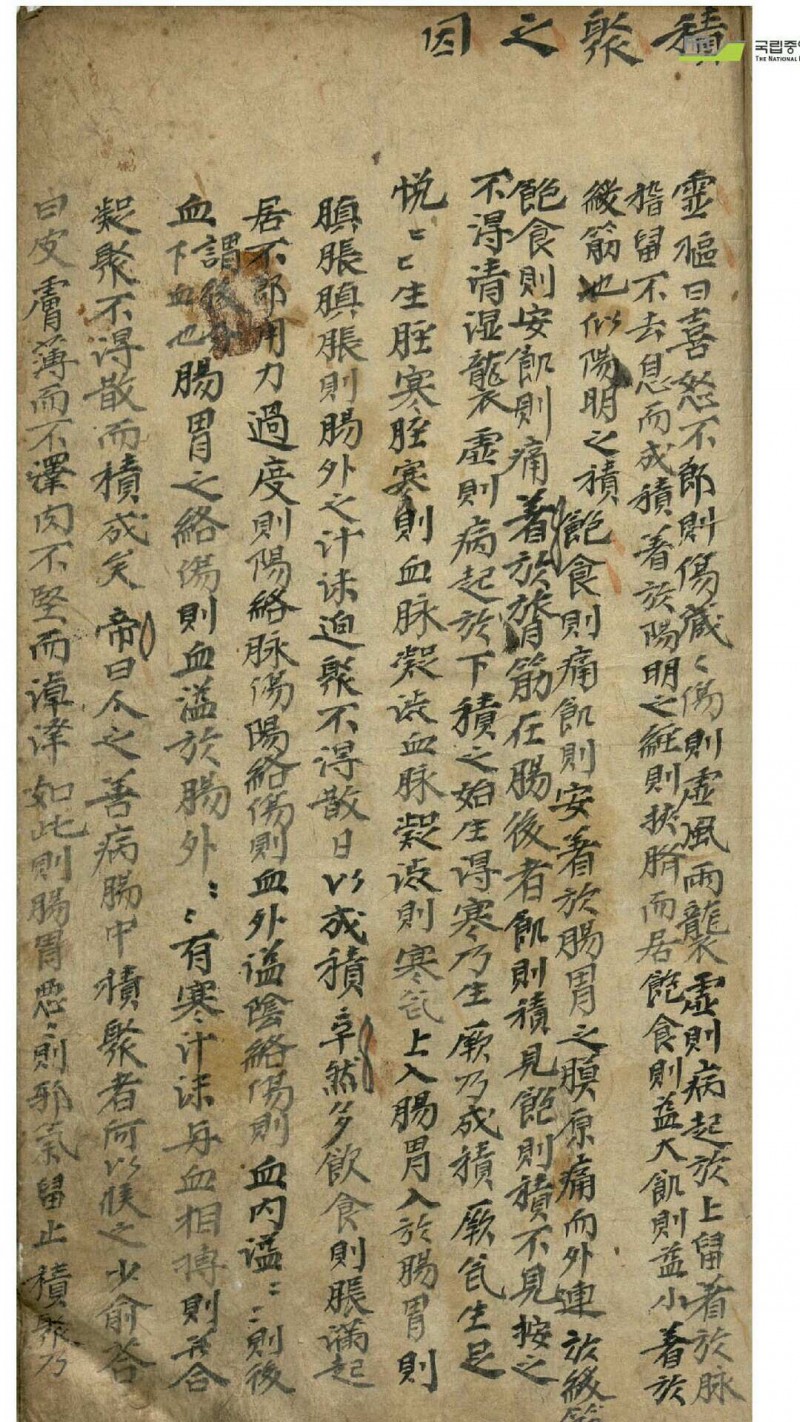 積聚之因
靈樞曰喜怒不節則傷蔵〻傷則虛風雨襲虛則病起於上留着於脉
稽留不去息而成積着於陽明之經則挾臍而居飽食則益大飢則益小着於
緩筋也似陽明之積飽食則痛飢則安着於腸胃之膜原痛而外連於緩筋
飽食則安飢則痛着於膂筋在腸後者飢則積見飽則積不見按之
不得清湿襲虛則病起於下積之始生得寒乃生厥乃成積厥気生足
悗〻〻生脛寒脛寒則血脉凝澁血脉凝澁則寒気上入腸胃入於腸胃則
䐜脹䐜脹則腸外之汁沫迫聚不得散日以成積卒然多飲食則脹滿起
居不節用力過度則陽絡脉傷陽絡傷則血外溢陰絡傷則血内溢〻則後
血謂後下血也腸胃之絡傷則血溢於腸外〻有寒汁沫与血相搏則并合
凝聚不得散而積成矣帝曰人之善病腸中積聚者何以候之少俞答
曰皮膚薄而不澤肉不堅而淖澤如此則腸胃惡〻則邪氣留止積聚乃
국립중
THE NATIONAL